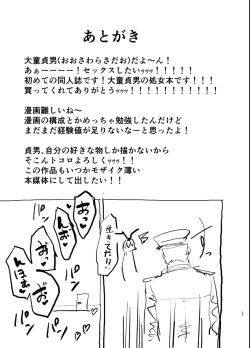 あとがき
大童貞男(おおさわらさだお)だよ～ん!
あぁーーーー!セックスしたいｯｯｯ!!!!!
初めての同人誌です!大童貞男の処女本です!!!!
買ってくれてありがとうｯｯｯ!!!!!!!!!!!
漫画難しいね～
漫画の構成とかめっちゃ勉強したんだけど
まだまだ経験値が足りないなーと思ったよ!
貞男、自分の好きな物しか描かないから
そこんトコロよろしくｯｯｯ!!
この作品もいつかモザイク薄い
本媒体にして出したい!!
パン
パン
パン
パン
パン
あっ♡
あっ♡